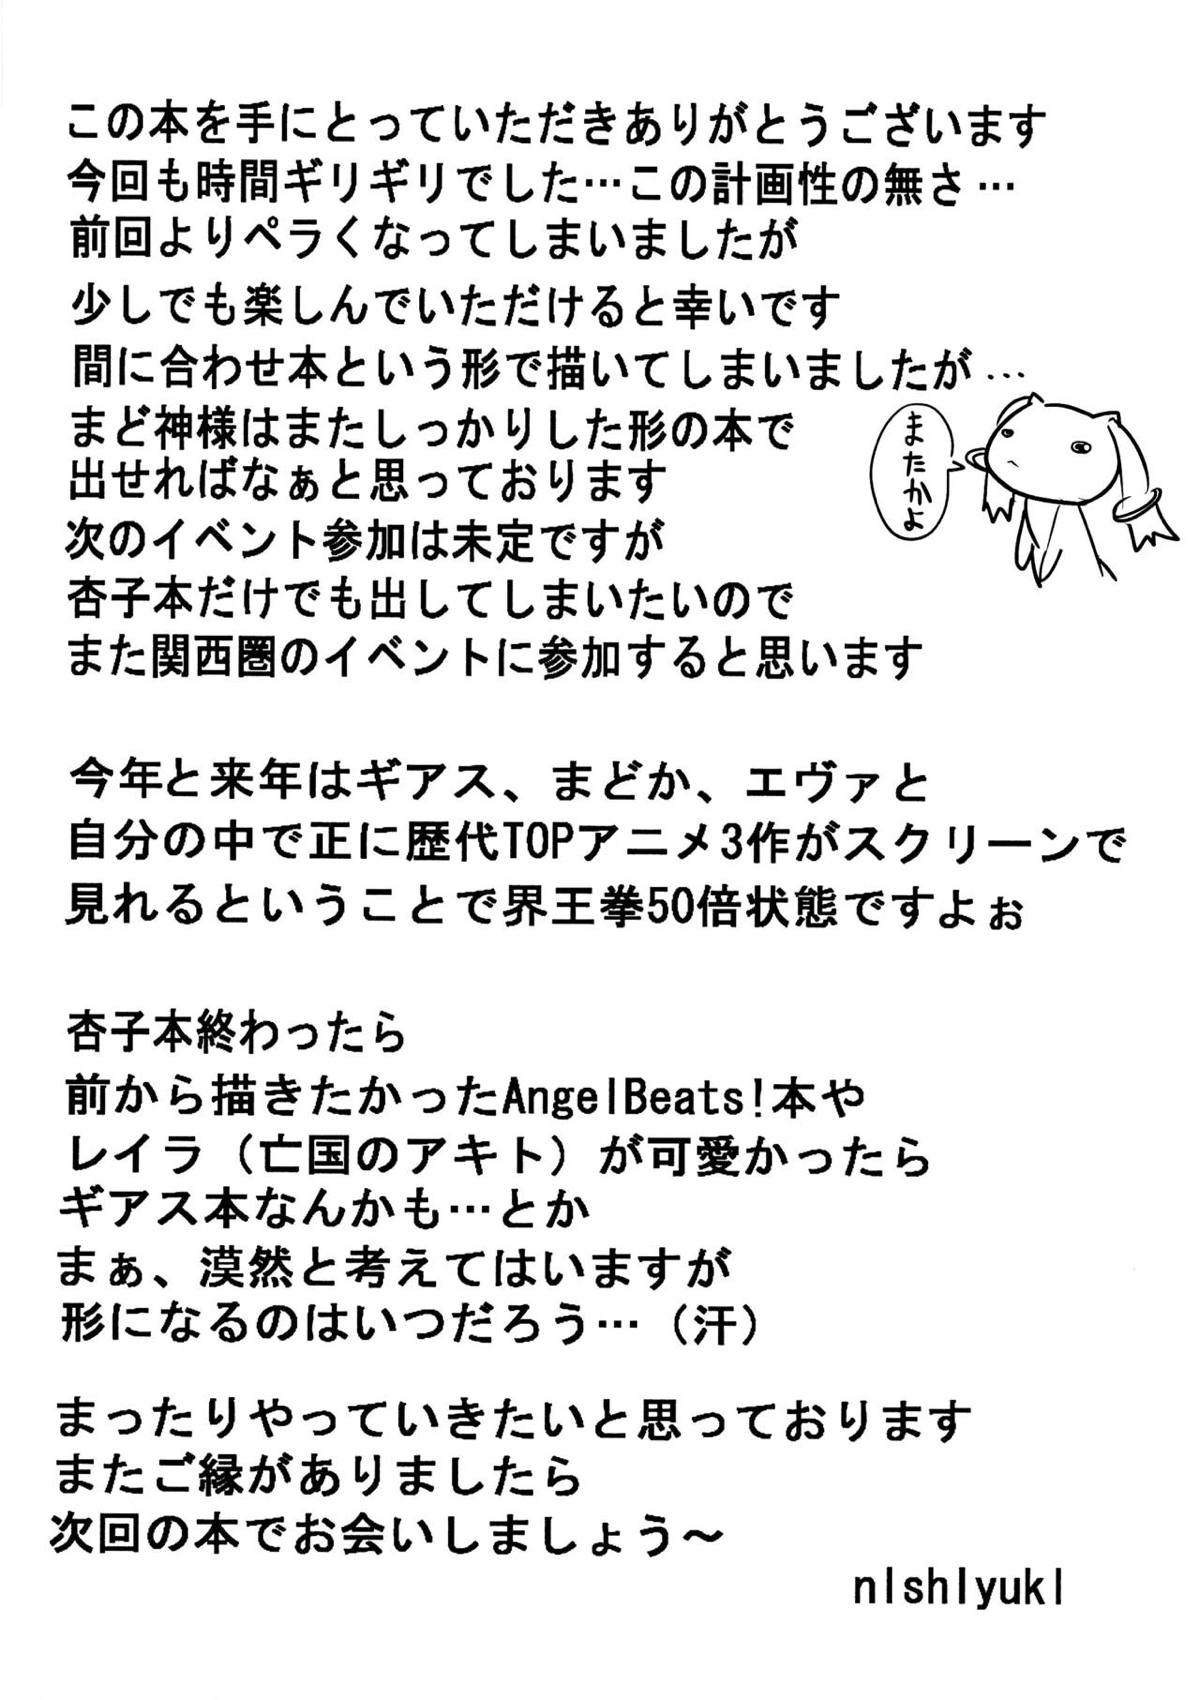 この本を手にとっていただきありがとうございます
今回も時間ギリギリでした…この計画性の無さ…
前回よりペラくなってしまいましたが
少しでも楽しんでいただけると幸いです
間に合わせ本という形で描いてしまいましたが…
まど神様はまたしっかりした形の本で
出せればなぁと思っております
またかよ
次のイベント参加は未定ですが
杏子本だけでも出してしまいたいので
また関西圏のイベントに参加すると思います
今年と来年はギアス、まどか、エヴァと
自分の中で正に歴代TOPアニメ3作がスクリーンで
見れるということで界王拳50倍状態ですよぉ
杏子本終わったら
前から描きたかったAngelBeats!本や
レイラ（亡国のアキト）が可愛かったら
ギアス本なんかも…とか
まぁ、漠然と考えてはいますが
形になるのはいつだろう…（汗）
まったりやっていきたいと思っております
またご縁がありましたら
次回の本でお会いしましょう～
nIshIyukI